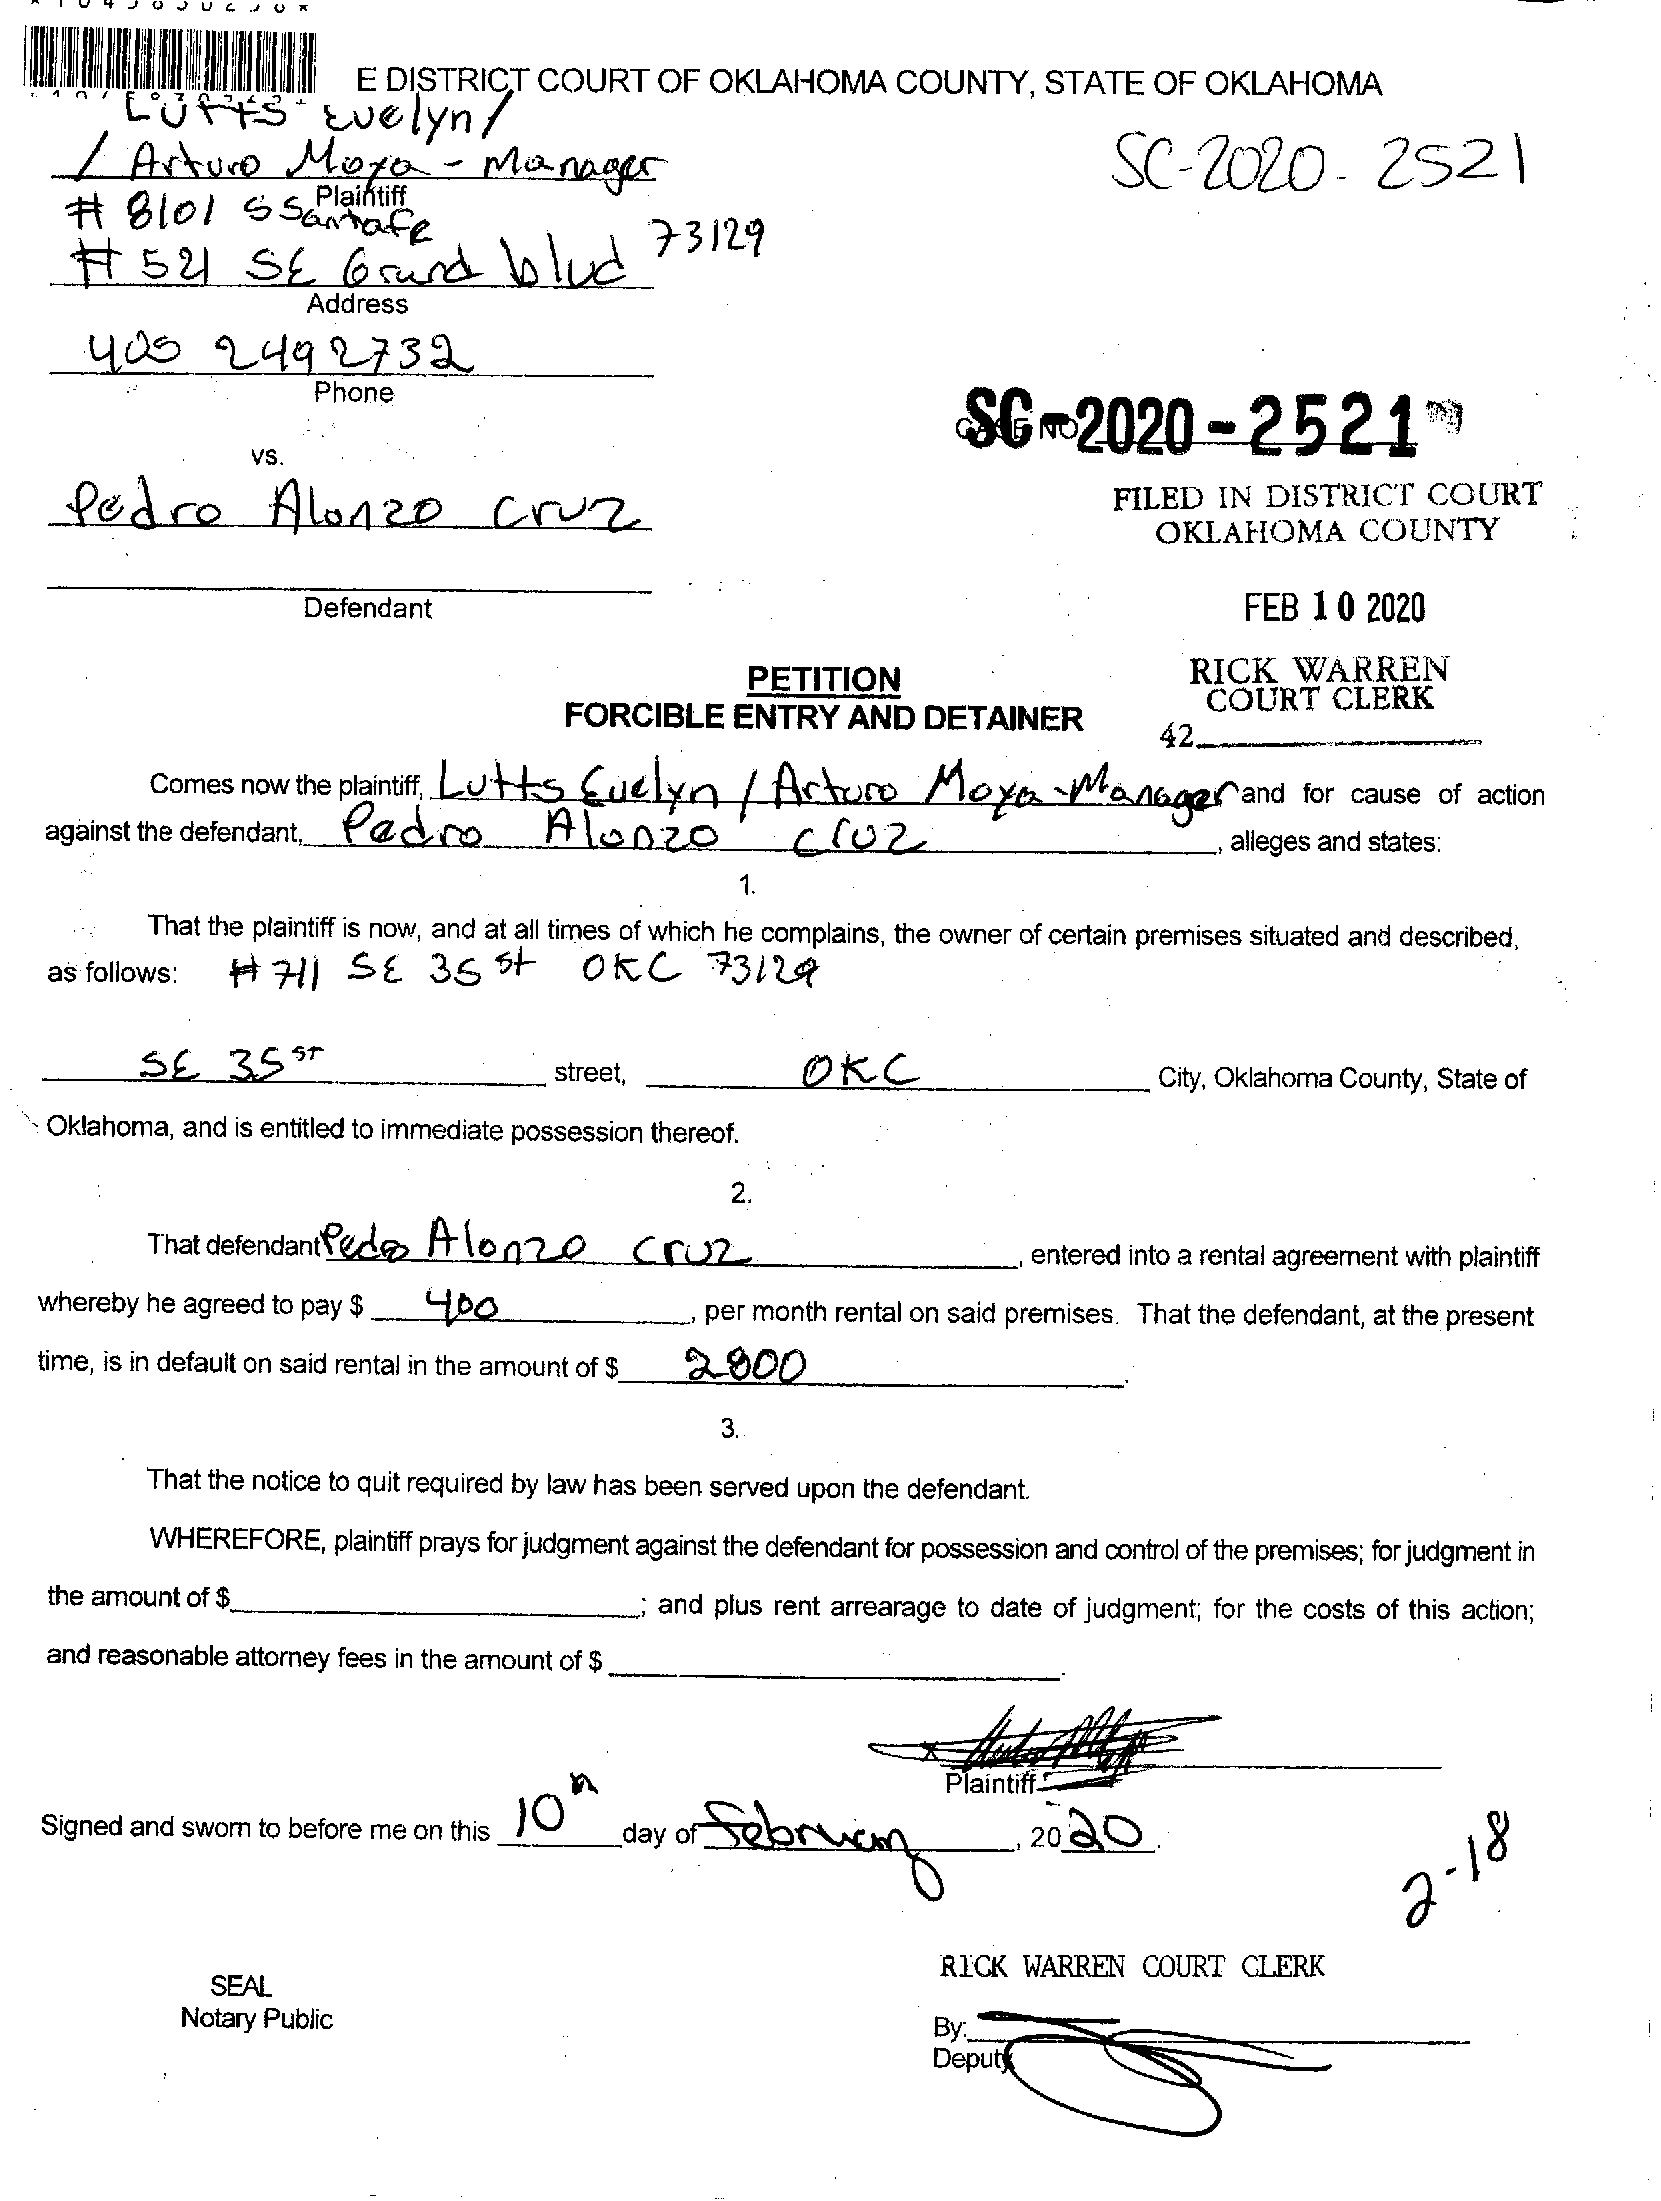 E DISTRICT COURT OF OKLAHOMA COUNTY, STATE OF OKLAHOMA
Lutts Evelyn /
/ Arturo Moya - Manager
Plaintiff
# 8101 S Santa Fe
# 521 SE Grand blvd 73129
Address
405 2492732
Phone
SC-2020-2521
SC-2020-2521
CASE NO
vs.
Pedro Alonzo Cruz
Defendant
FILED IN DISTRICT COURT
OKLAHOMA COUNTY
FEB 10 2020
RICK WARREN
COURT CLERK
42
PETITION
FORCIBLE ENTRY AND DETAINER
Comes now the plaintiff, Lutts Evelyn / Arturo Moya - Manager and for cause of action
against the defendant, Pedro Alonzo Cruz, alleges and states:
1.
That the plaintiff is now, and at all times of which he complains, the owner of certain premises situated and described,
as follows: # 711 SE 35 st OKC 73129
SE 35 ST street, OKC City, Oklahoma County, State of
Oklahoma, and is entitled to immediate possession thereof.
2.
That defendant Pedro Alonzo Cruz, entered into a rental agreement with plaintiff
whereby he agreed to pay $ 400, per month rental on said premises. That the defendant, at the present
time, is in default on said rental in the amount of $ 2800.
3.
That the notice to quit required by law has been served upon the defendant.
WHEREFORE, plaintiff prays for judgment against the defendant for possession and control of the premises; for judgment in
the amount of $ ; and plus rent arrearage to date of judgment; for the costs of this action;
and reasonable attorney fees in the amount of $ .
x
Plaintiff
Signed and sworn to before me on this 10th day of February, 2020.
2-18
SEAL
Notary Public
RICK WARREN COURT CLERK
By:
Deputy